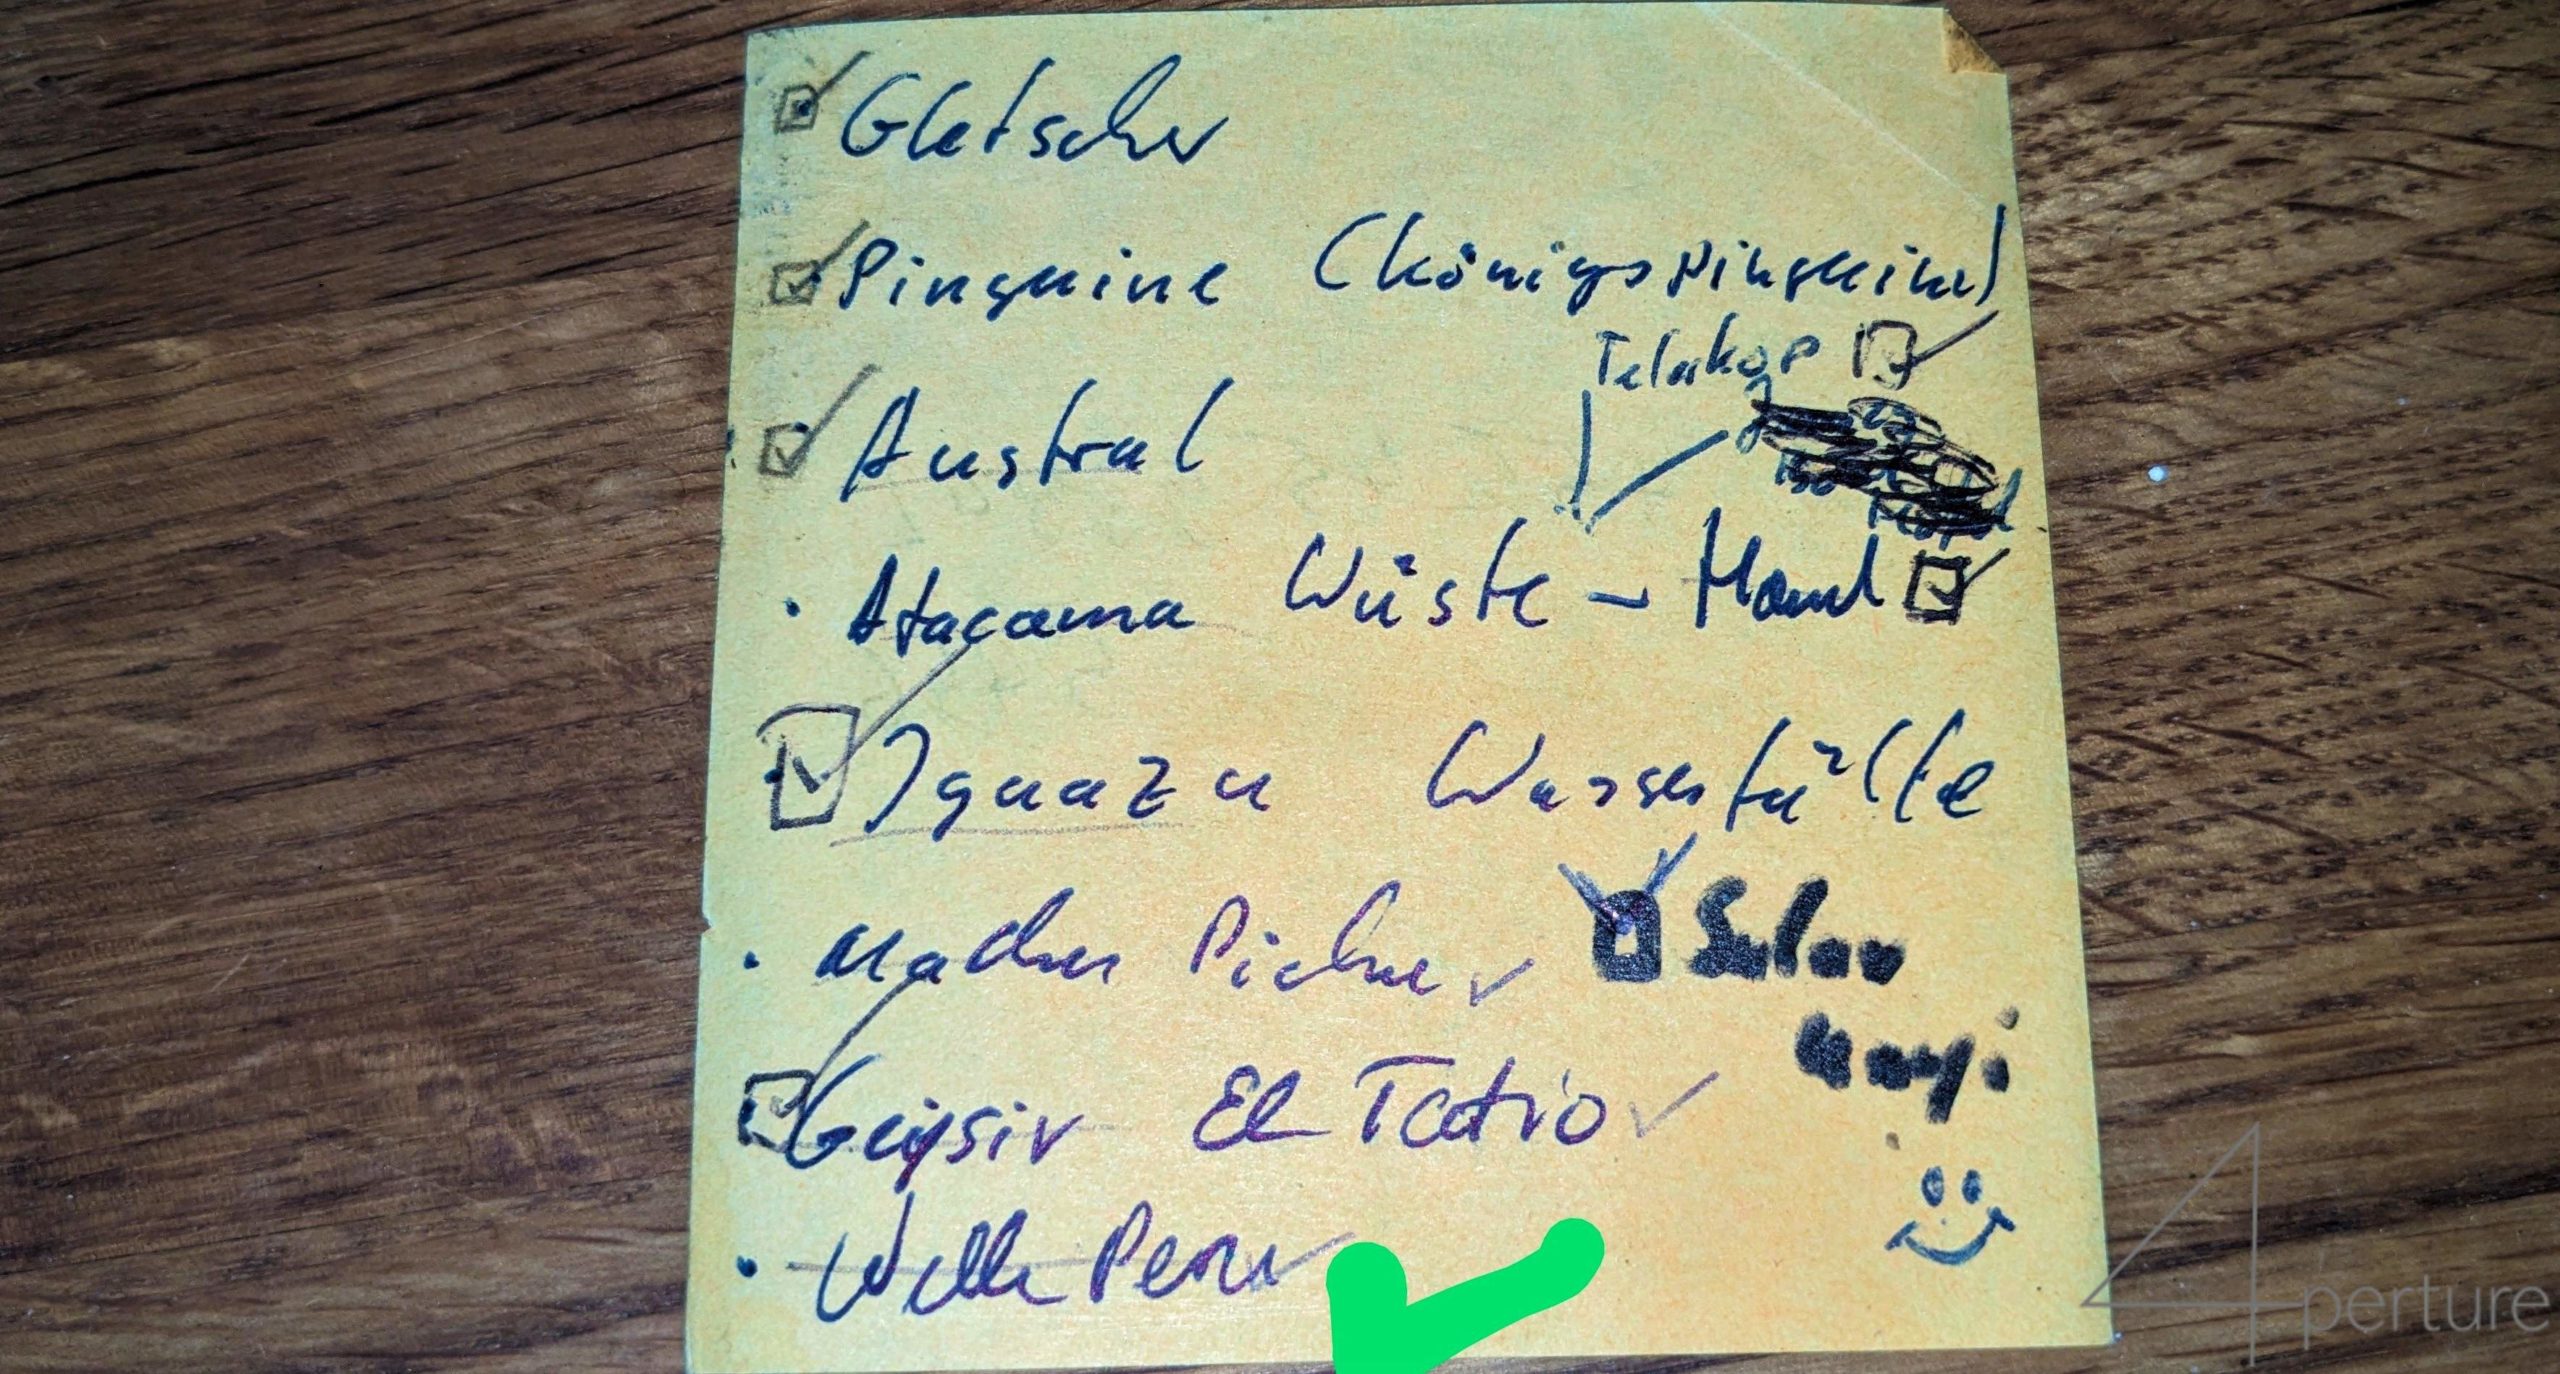 Gletscher
Pinguine (Königspinguine)
Teleskop
Austral
Atacama Wüste - Mond
Iguazu Wasserfälle
Machu Pichu
Salar
Uayi
Geysir El Tatio
Welle Peru
4perture